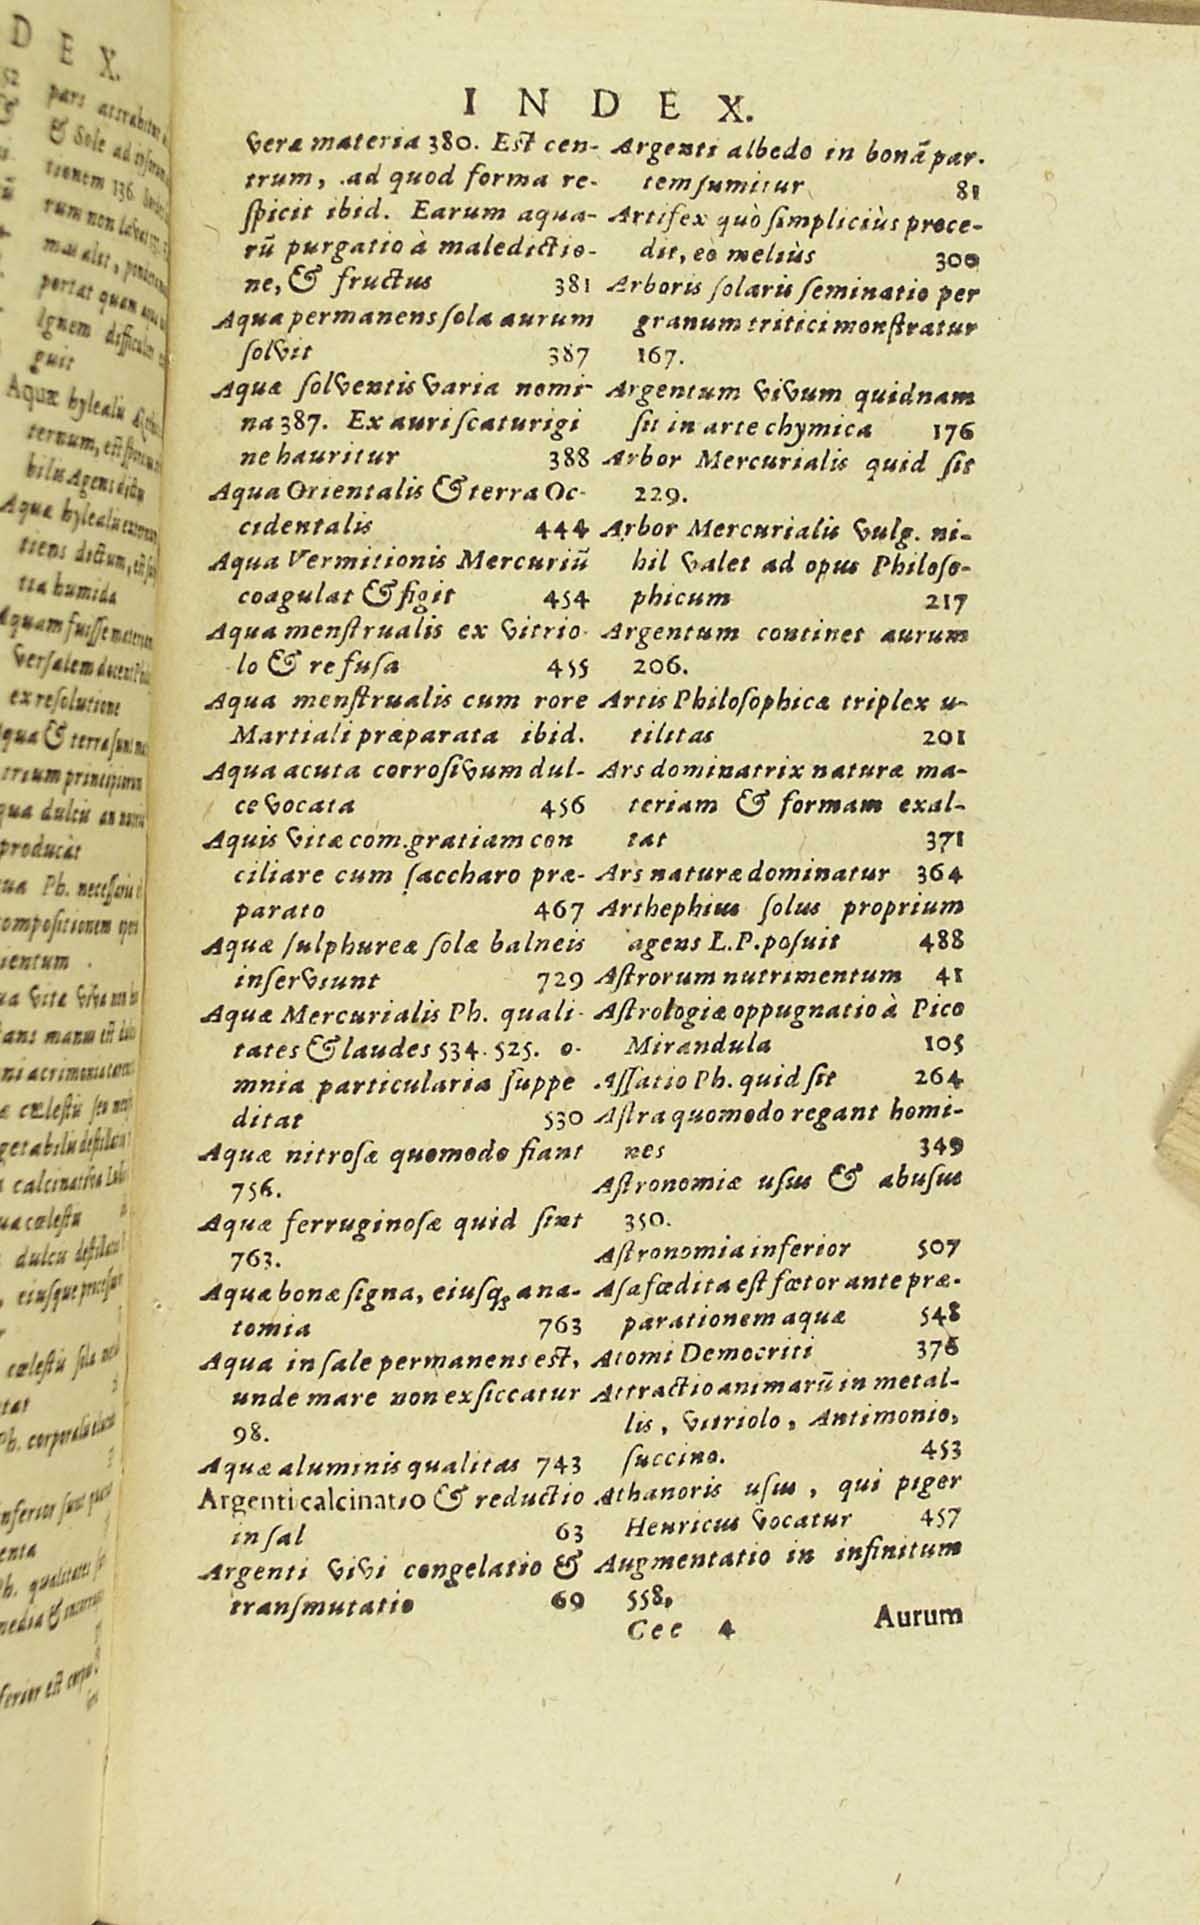 D E X.
pars attrahitur
& Sole ad
tionem 136.
rum non
mas alit,
portat quam
Ignem difficulter
guit
Aquæ hylealis
ternum, est
bilis Agens dictu
Aquæ hylealis
tiens dictum, est
tia humida
Aquam fuisse materiam
versalem docent
ex resolutione
qua & terra sunt
trium principiorum
qua dulcis an
producāt
Ph. necessaria
compositionem
I N D E X.
vera materia 380. Est cen-
trum, ad quod forma re-
spicit ibid. Earum aqua-
rū purgatio à maledictio-
ne, & fructus 381
Aqua permanens sola aurum
solvit 387
Aquæ solventis varia nomi-
na 387. Ex auri scaturigi
ne hauritur 388
Aqua Orientalis & terra Oc-
cidentalis 444
Aqua Vermitionis Mercuriū
coagulat & figit 454
Aqua menstrualis ex vitrio-
lo & re fusa 455
Aqua menstrualis cum rore
Martiali præparata ibid.
Aqua acuta corrosivum dul-
ce vocata 456
Aquis vitæ com. gratiam con
ciliare cum saccharo præ-
parato 467
Aquæ sulphureæ solæ balneis
inserviunt 729
Aquæ Mercurialis Ph. quali-
tates & laudes 534. 525. o-
mnia particularia suppe
ditat 530
Aquæ nitrosæ quomodo fiant
756.
Aquæ ferruginosæ quid sint
763.
Aquæ bonæ signa, eiusq; ana-
tomia 763
Aqua in sale permanens est,
unde mare non exsiccatur
98.
Aquæ aluminis qualitas 743
Argenti calcinatio & reductio
in sal 63
Argenti vivi congelatio &
transmutatio 69
Argenti albedo in bonā par-
tem sumitur 81
Artifex quò simpliciùs proce-
dit, eo meliùs 300
Arboris solaris seminatio per
granum tritici monstratur
167.
Argentum vivum quidnam
sit in arte chymica 176
Arbor Mercurialis quid sit
229.
Arbor Mercurialis vulg. ni-
hil valet ad opus Philoso-
phicum 217
Argentum continet aurum
206.
Artis Philosophicæ triplex u-
tilitas 201
Ars dominatrix naturæ ma-
teriam & formam exal-
tat 371
Ars naturæ dominatur 364
Arthephius solus proprium
agens L.P. posuit 488
Astrorum nutrimentum 41
Astrologiæ oppugnatio à Pico
Mirandula 105
Assatio Ph. quid sit 264
Astra quomodo regant homi-
nes 349
Astronomiæ usus & abusus
350.
Astronomia inferior 507
Asa fœdita est fœtor ante præ-
parationem aquæ 548
Atomi Democriti 376
Attractio animarū in metal-
lis, vitriolo, Antimonio,
succino. 453
Athanoris usus, qui piger
Henricus vocatur 457
Augmentatio in infinitum
558,
Ccc 4 Aurum